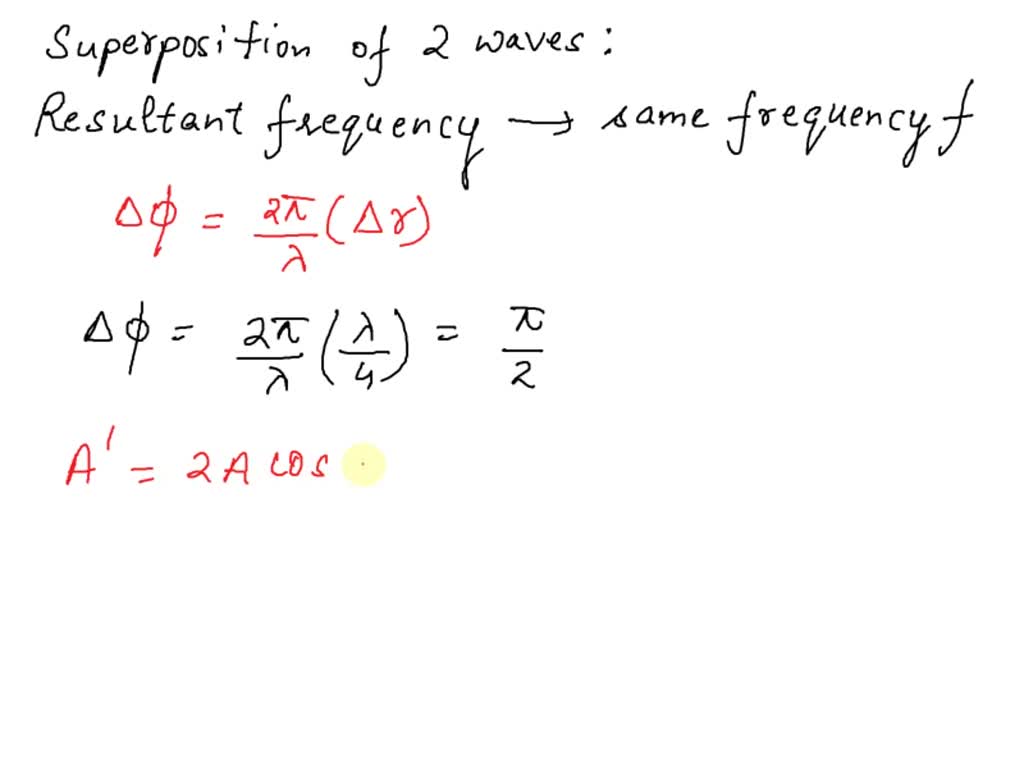 Superposition of 2 waves:
Resultant frequency → same frequency f
Δϕ = 2π/λ (Δr)
Δϕ = 2π/λ (λ/4) = π/2
A' = 2A cos